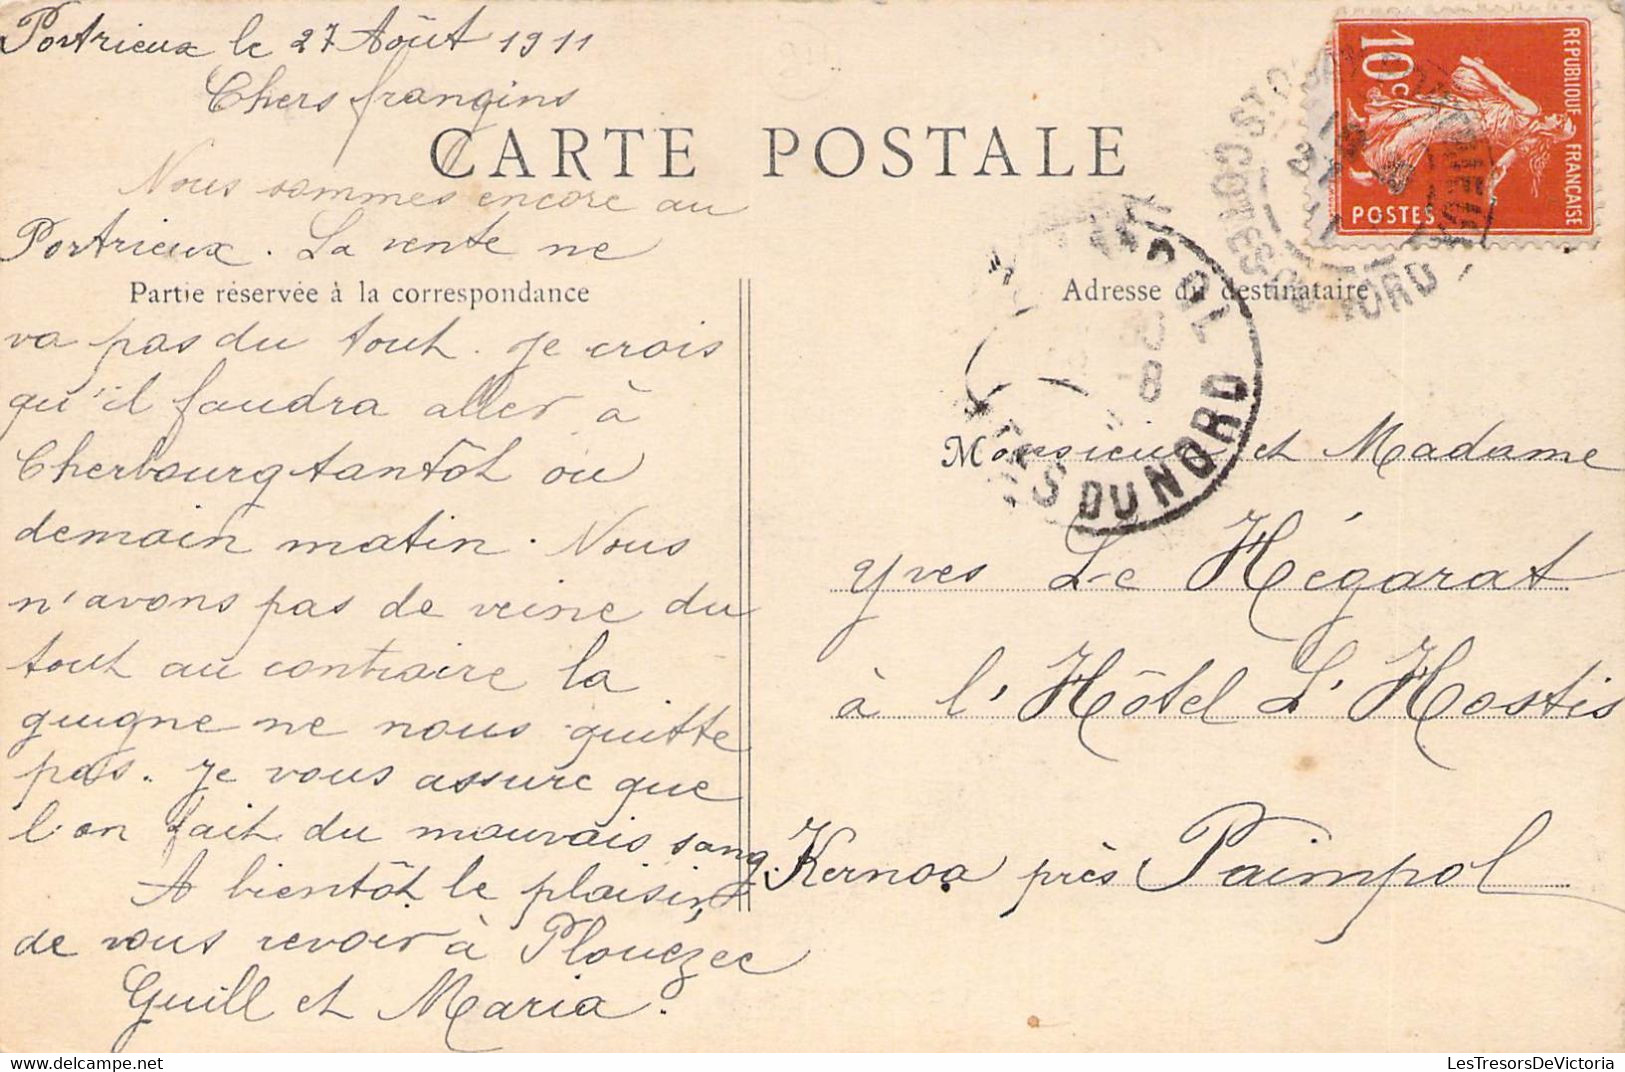 Portrieux le 27 Août 1911
Chers frangins
CARTE POSTALE
Nous sommes encore au
Portrieux. La vente ne
Partie réservée à la correspondance
va pas du tout. Je crois
qu'il faudra aller à
Cherbourg tantôt ou
demain matin. Nous
n'avons pas de veine du
tout au contraire la
guigne ne nous quitte
pas. Je vous assure que
l'on fait du mauvais sang.
A bientôt le plaisir,
de vous revoir à Plouézec
Guill et Maria.
REPUBLIQUE FRANÇAISE
10c
POSTES
CÔTES DU NORD
Adresse du destinataire
8
DU NORD
Monsieur et Madame
Yves Le Hégarat
à l'Hôtel L'Hostis
Kernoa près Paimpol
LesTresorsDeVictoria